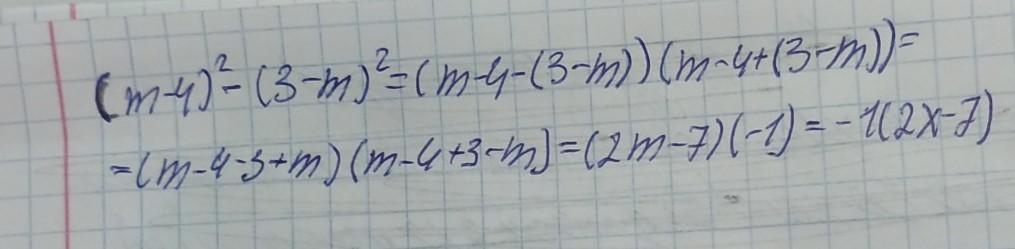 (m-4)²-(3-m)²=(m-4-(3-m))(m-4+(3-m))=
=(m-4-3+m)(m-4+3-m)=(2m-7)(-1)=-1(2x-7)